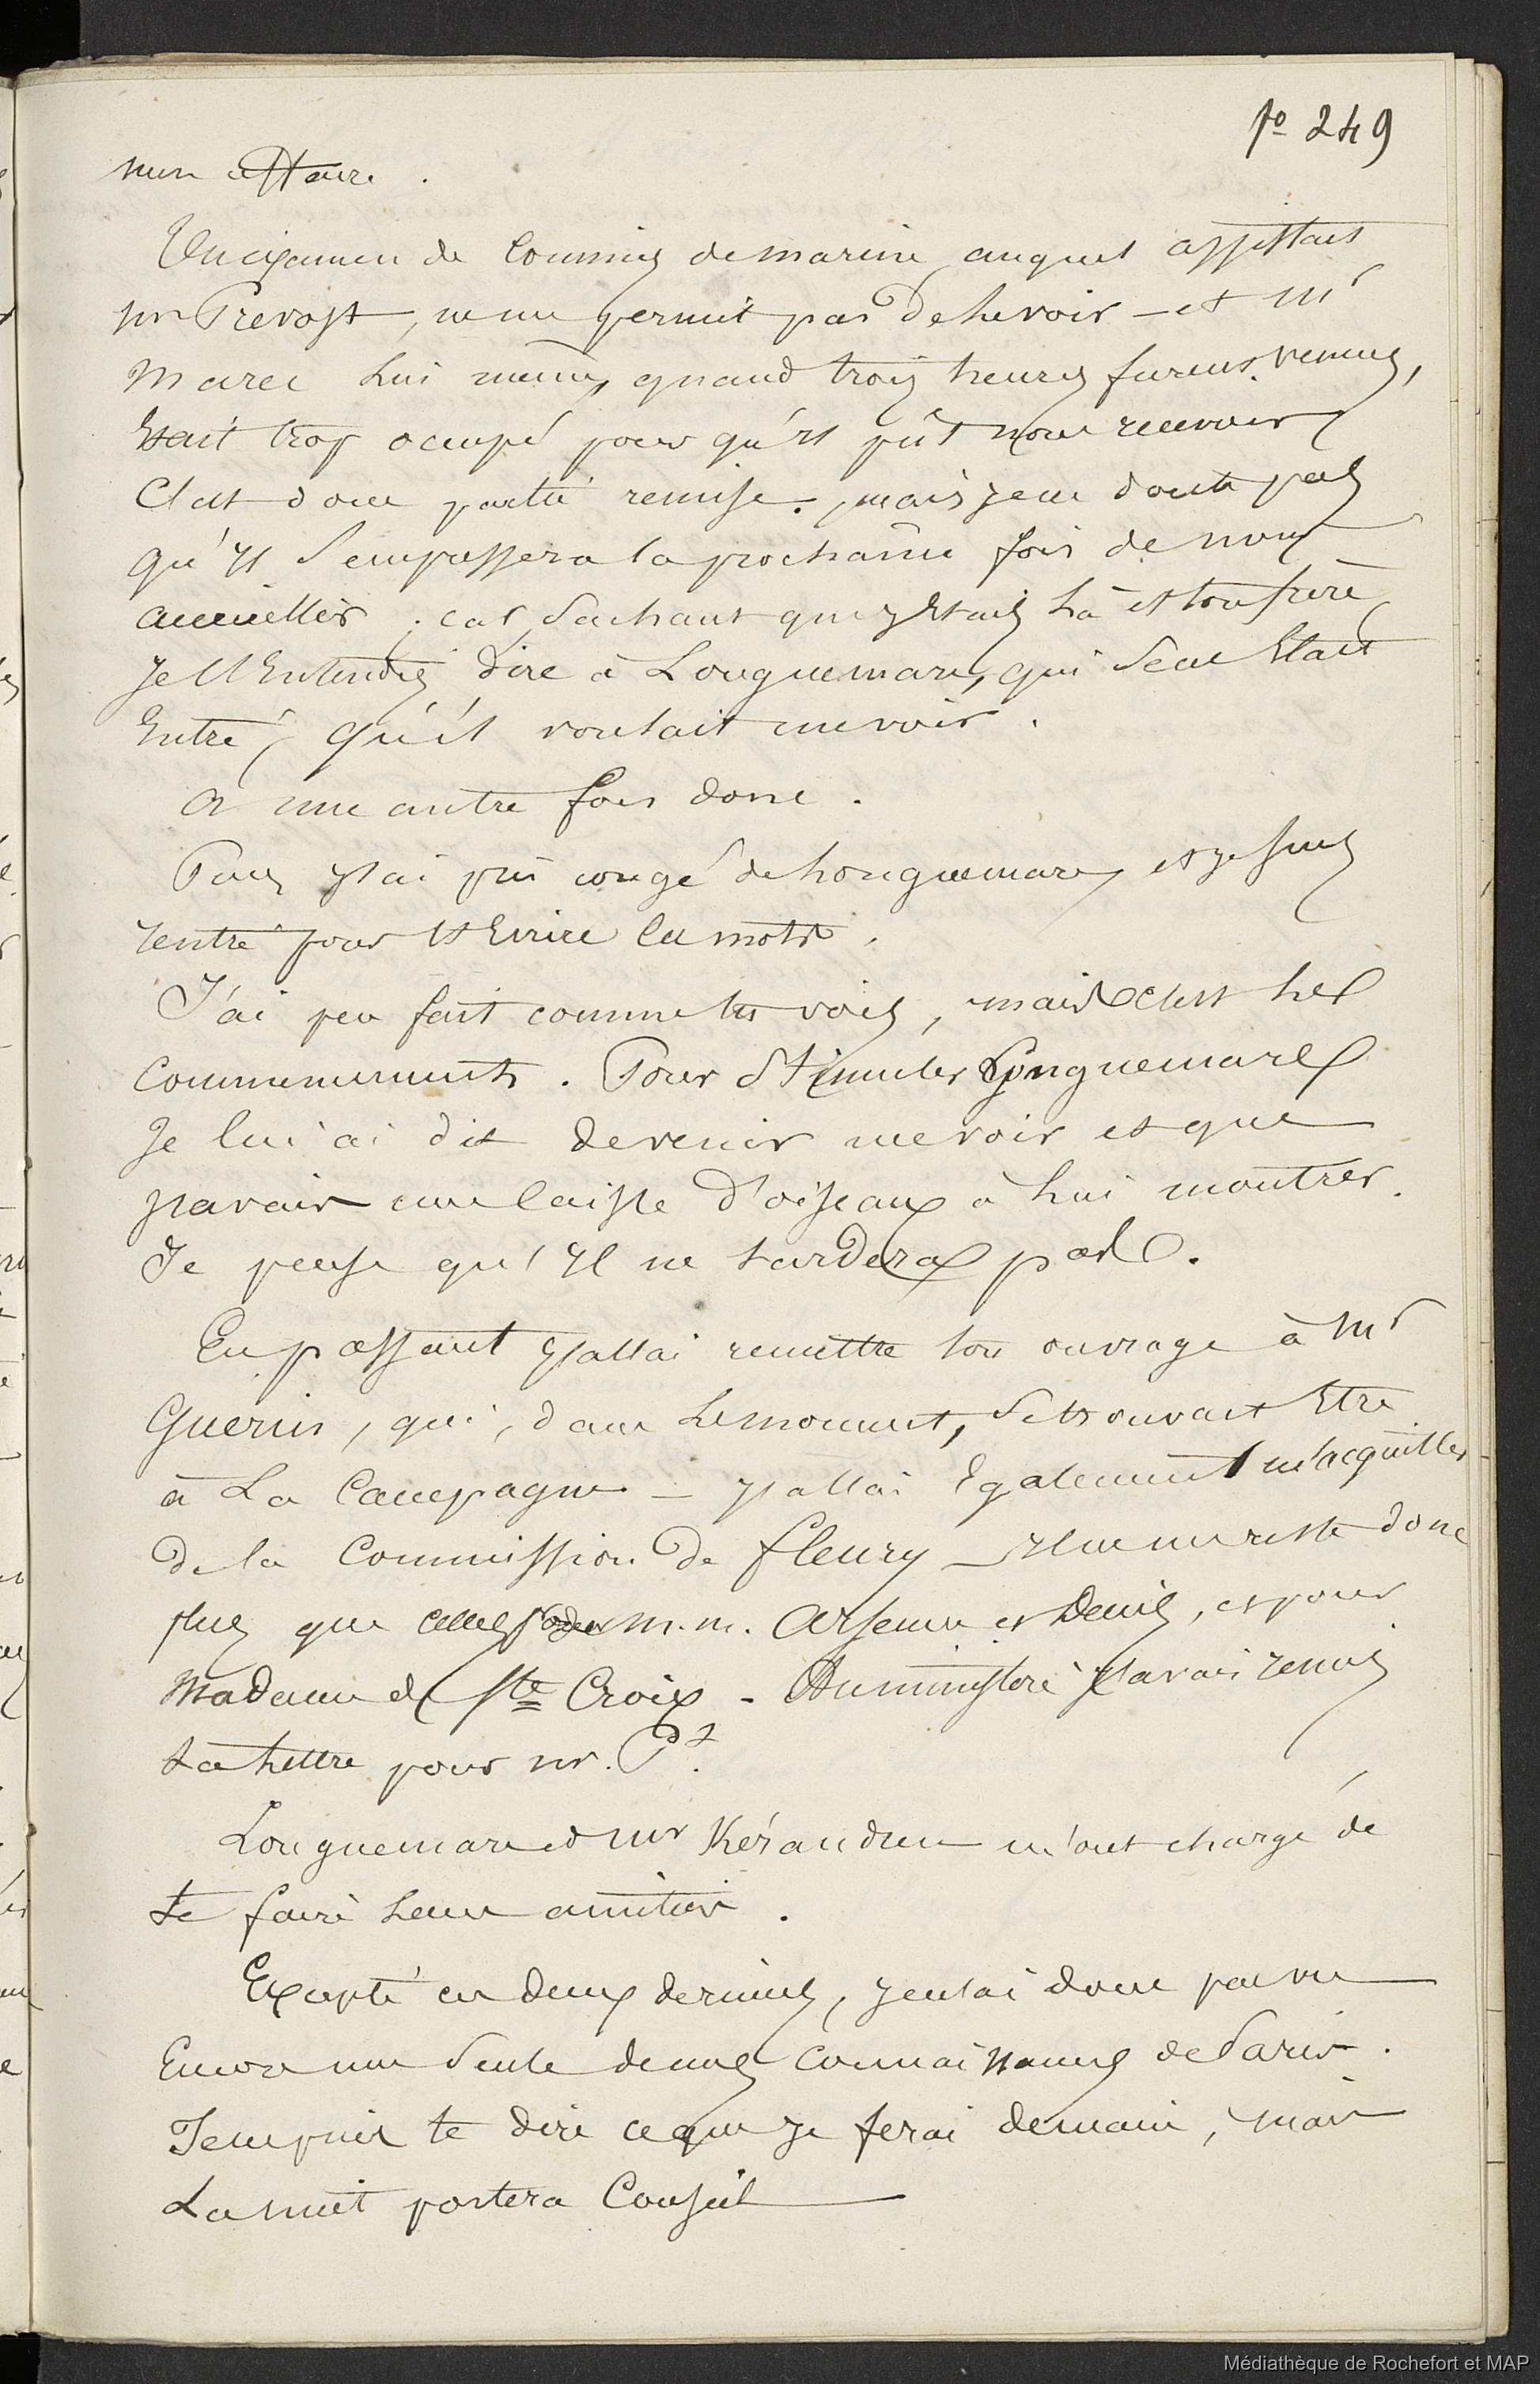 fo 249
mon affaire.
Un examen de Commis de marine auquel assistait
mr Prevost, ne me permit pas de le voir - et Mr
Marec lui même, quand trois heures furent venues,
Etait trop occupé pour qu'il pût nous recevoir
C'est donc partie remise. mais je ne doute pas
qu'il s'empressera la prochaine fois de nous
accueillir; car, sachant que j'Etais là et ton frère
Je l'Entendis dire à Longuemare, qui seul Etait
Entré, qu'il voulait me voir.
à une autre fois donc.
Puis j'ai pris congé de Longuemare et je suis
rentré pour t'Ecrire ces mots.
J'ai peu fait comme tu vois, mais c'est le
commencement. Pour stimuler Longuemare
Je lui ai dit de venir me voir et que
j'avais une caisse d'oiseaux à lui montrer.
Je pense qu'Il ne tardera pas.
En passant j'allai remettre ton ouvrage à Mr
Guerin, qui, dans le moment, se trouvait Etre
à La Campagne - j'allai Egalement m'acquitter
de la Commission de fleury - Il ne me reste donc
plus que celles de m.m. Arsenne et Denis, et pour
Madame de Ste Croix - Au ministère j'avais remis
ta lettre pour mr. Pt.
Longuemare et Mr Kéraudren m'ont chargé de
te faire leurs amitiés.
Excepté ces deux derniers, je n'ai donc pas vu
Encore une seule de nos connaissances de Paris.
Je ne puis te dire ce que je ferai demain, mais
La nuit portera Conseil
Médiathèque de Rochefort et MAP